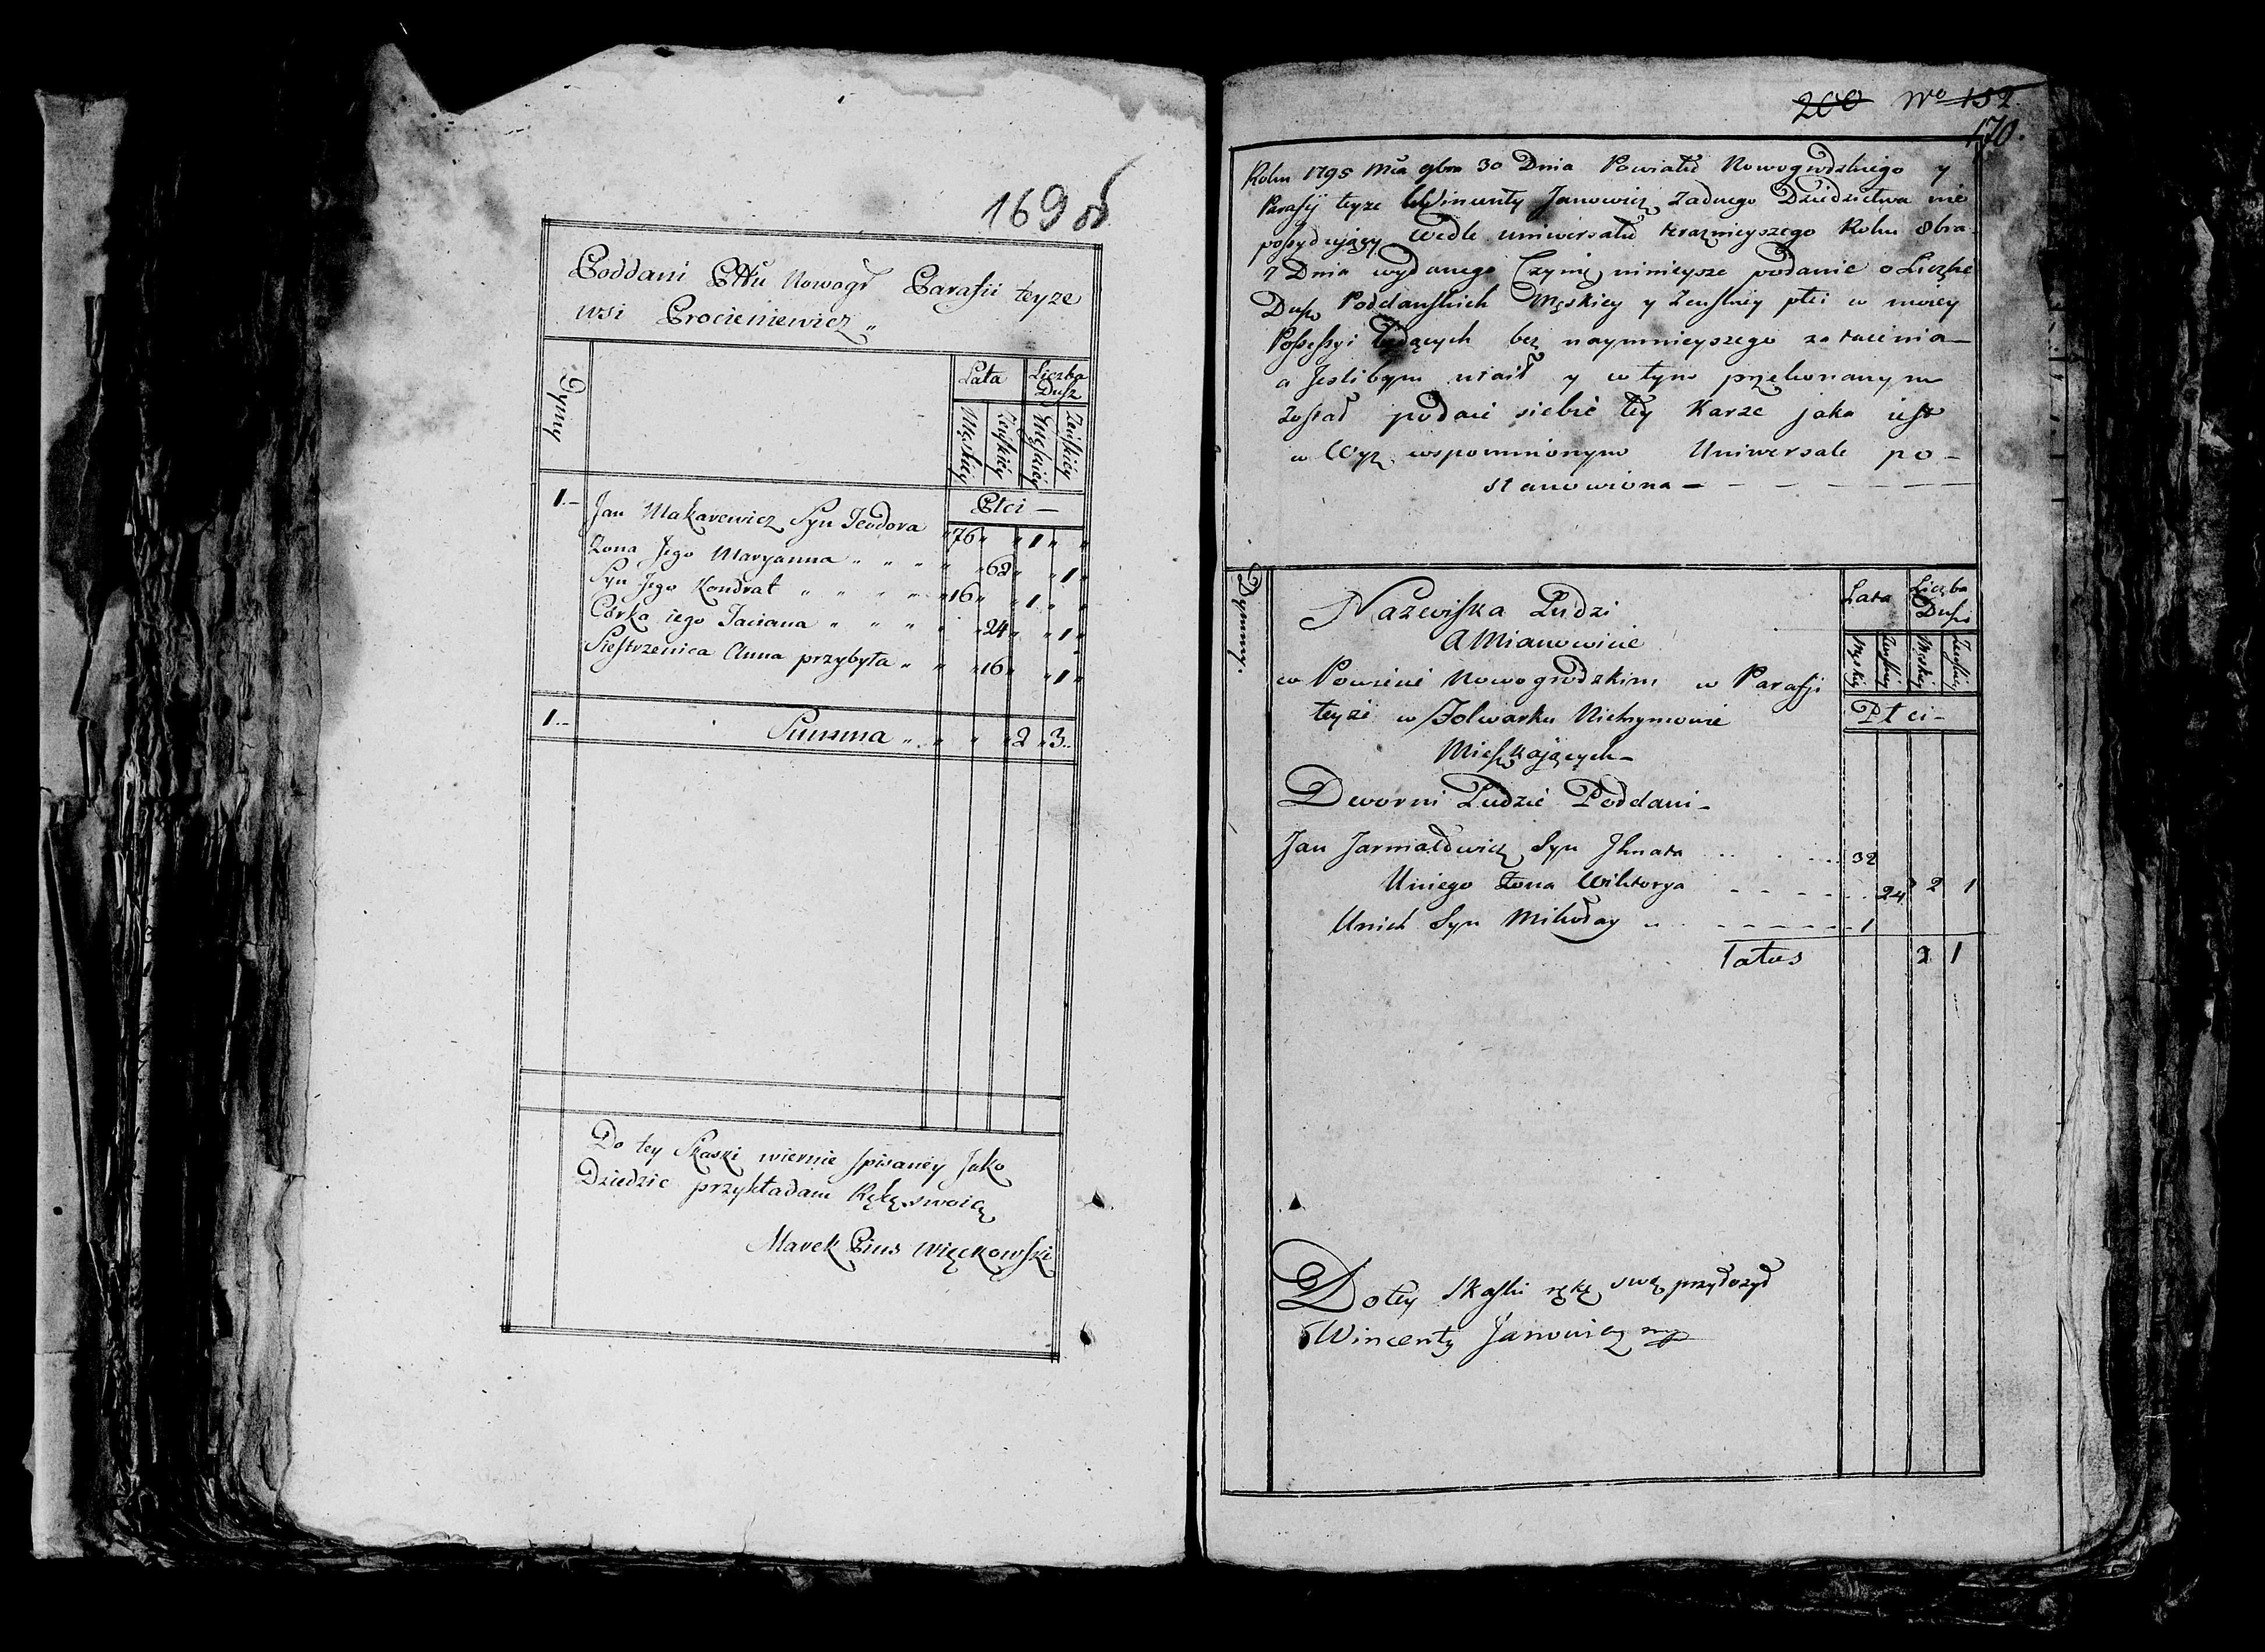 169 об
Poddani Pttu Nowogr Parafii teyze
wsi Procieniewicz „
Dymy
Lata
Liczba Dusz
Męskiey
Zeńskiey
Męskiey
Zeńskiey
Płci —
1.- Jan Makarewicz Syn Teodora „ 76 „ „ 1 „ „
Zona Jego Maryanna „ „ „ „ „ 62 „ „ 1 „
Syn Jego Kondrat „ „ „ „ 16 „ „ 1 „ „
Córka iego Taciana „ „ „ „ „ 24 „ „ 1 „
Siestrzenica Anna przybyła „ „ „ 16 „ „ 1 „
1.- Summa „ „ „ „ 2 „ 3 „
Do tey Skaski wiernie spisaney Jako
Dziedzic przykładam Rękę swoię
Marek Pius Więckowski
200 No 152
170.
Roku 1795 Mca 9bra 30 Dnia Powiatu Nowogrodzkiego y
Parafij teyze Wincenty Janowicz Zadnego Dziedzictwa nie
possydujący Wedle uniwersału teraznieyszego Roku 8bra
7 Dnia wydanego Czynię ninieysze podanie o Liczbie
Dusz Poddanskich Męskiey y Zenskiey płci w moiey
Possessyi będących bez naymnieyszego zataienia —
a Jeslibym utaił y w tym przekonanym
Został podaie siebie tey Karze jaka iest
w Wyz wspomnionym Uniwersale po-
stanowiona —
Dymmy.
Nazwiska Ludzi
A Mianowicie
w Powiecie Nowogrodzkim w Parafji
teyze w Folwarku Niehrymowie
Mieszkających —
Lata
Liczba Dusz
Męskiey
Zenskiey
Męskiey
Zenskiey
Płci —
Dworni Ludzie Poddani —
Jan Jarmałowicz Syn Jhnata 32
Uniego Zona Wiktorya 24 2 1
Unich Syn Mikołay 1
Latus 2 1
Do tey Skaski rękę swę przyłozył
Wincenty Janowicz mp